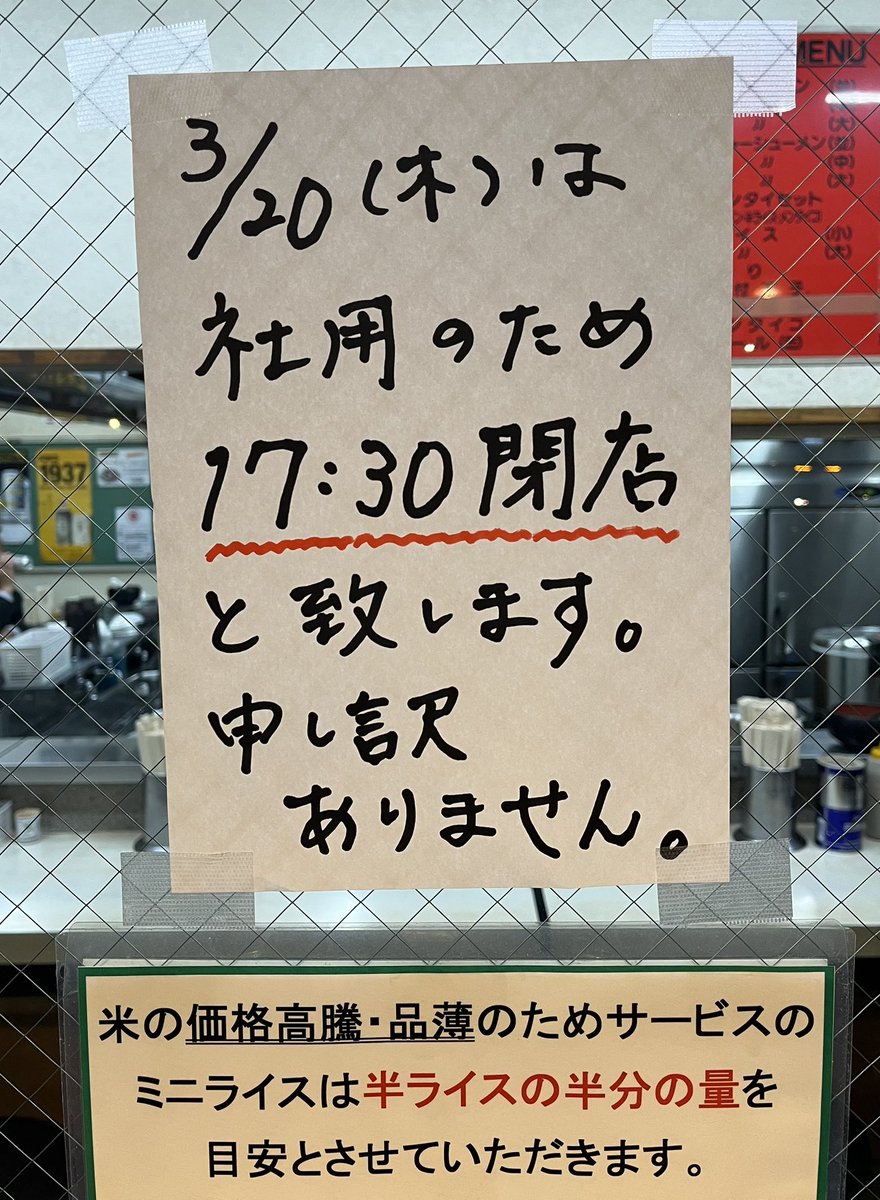 3/20(木)は
社用のため
17:30閉店
と致します。
申し訳
ありません。
米の価格高騰・品薄のためサービスの
ミニライスは半ライスの半分の量を
目安とさせていただきます。
MENU
(大)
ーシューメン(並)
〃(中)
〃(大)
ンタイセット
ス(小)
〃(大)
り
ンタイコ
ール
1937